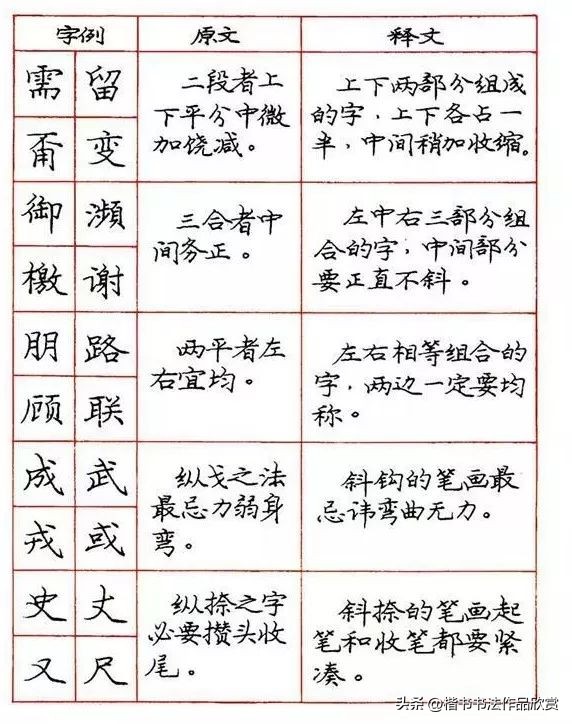 字例 原文 释文
需 留
甭 变
二段者上
下平分中微
加饶减。
上下两部分组成
的字,上下各占一
半,中间稍加收缩。
御 濒
檄 谢
三合者中
间务正。
左中右三部分组
合的字,中间部分
要正直不斜。
朋 路
顾 联
两平者左
右宜均。
左右相等组合的
字,两边一定要均
称。
成 武
戎 或
纵戈之法
最忌力弱身
弯。
斜钩的笔画最
忌讳弯曲无力。
史 丈
又 尺
纵捺之字
必要攒头收
尾。
斜捺的笔画起
笔和收笔都要紧
凑。
头条 @楷书书法作品欣赏